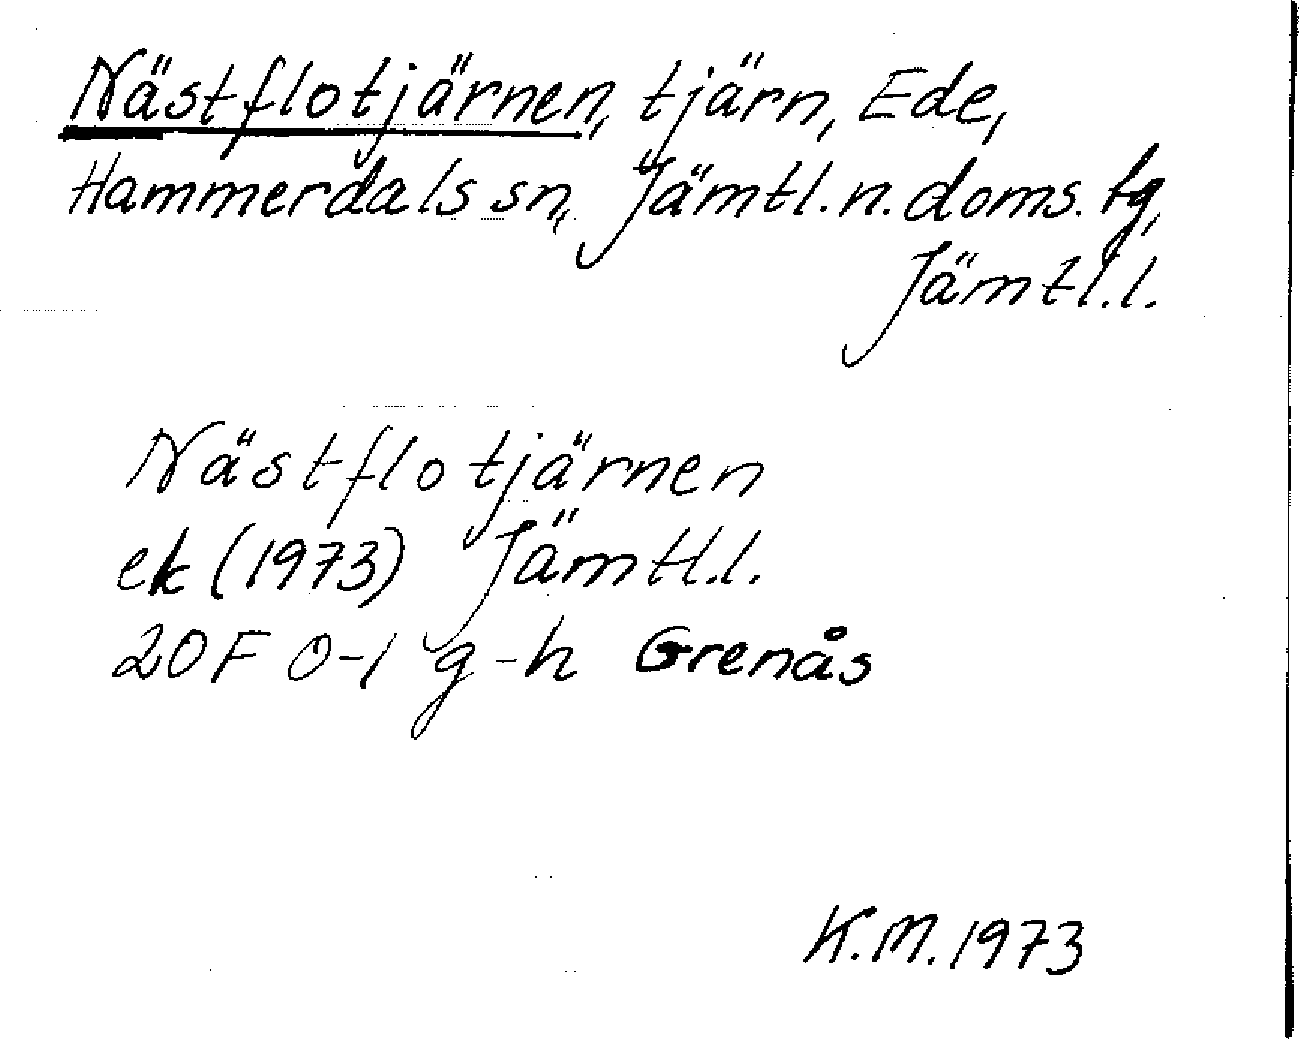 Nästflotjärnen, tjärn, Ede,
Hammerdals sn, Jämtl. n. doms. tg,
Jämtl. l.
Nästflotjärnen
ek (1973) Jämtl. l.
20F 0-1 g-h Grenås
K.M. 1973